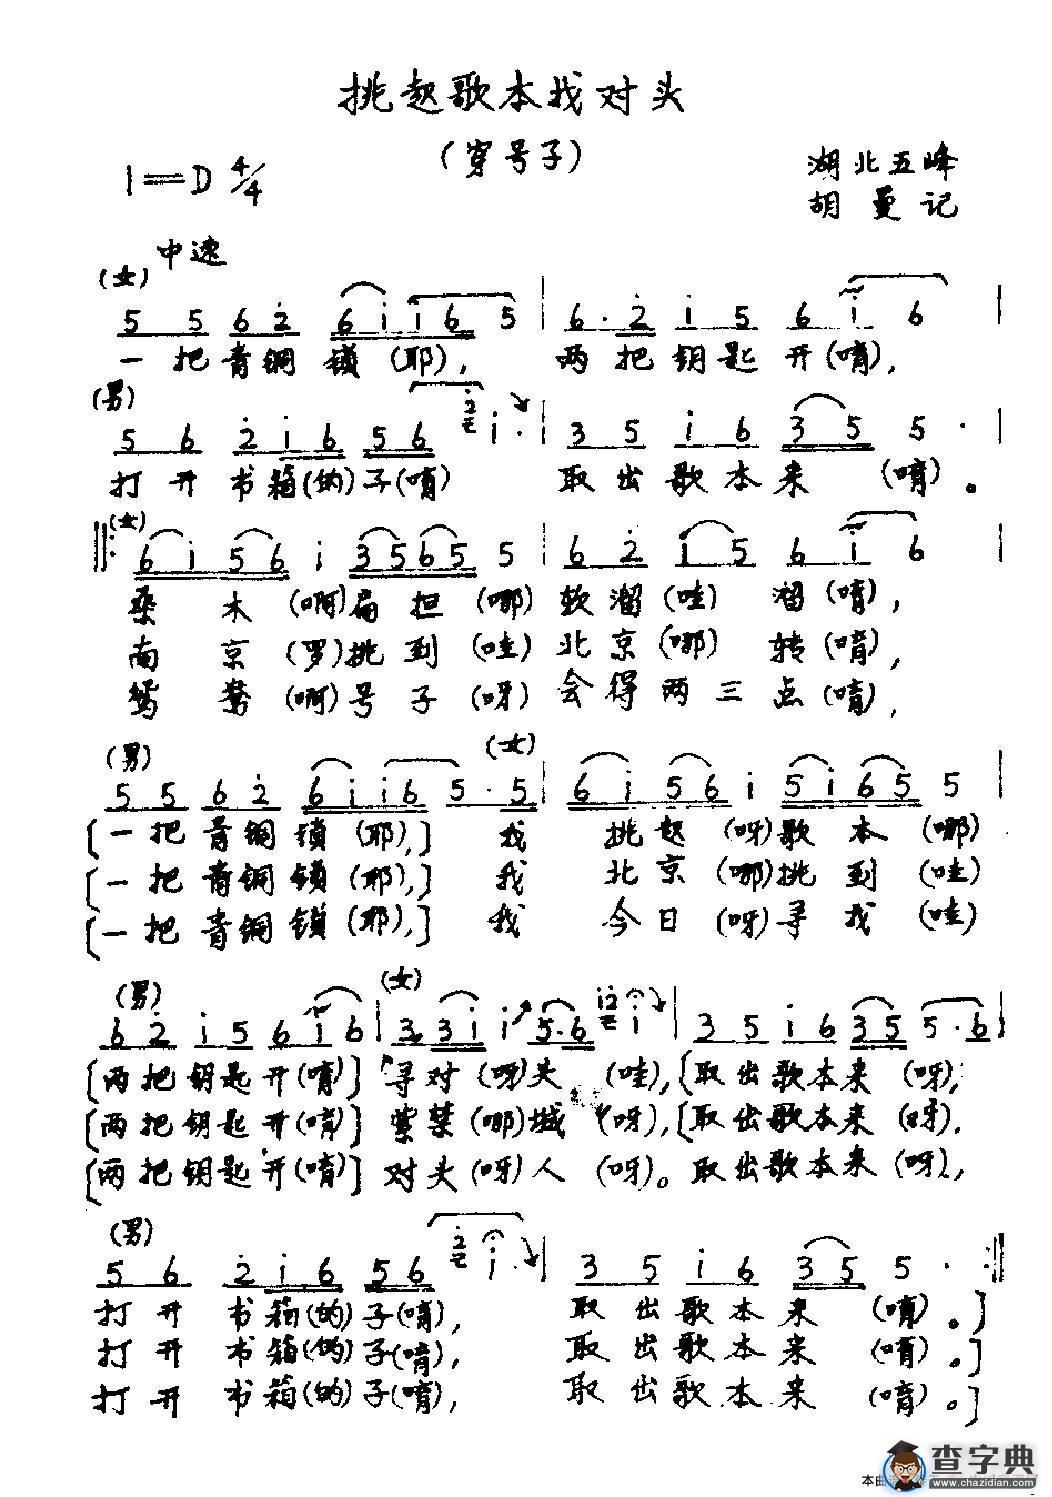 挑起歌本找对头
(穿号子)
1=D 4/4
湖北五峰
胡曼记
中速
(女)
5 5 6 2̇ 6 i i 6 5 | 6. 2̇ i 5 6 i 6 |
一把青铜锁(耶), 两把钥匙开(唷),
(男)
5 6 2̇ i 6 5 6 2̇ i. 3 5 i 6 3 5 5. |
打开书箱(的)子(唷) 取出歌本来(唷)。
(女)
6 i 5 6 i 3 5 6 5 5 | 6 2̇ i 5 6 i 6 |
桑木(啊)扁担(哪)软溜(哇)溜(唷),
南京(罗)挑到(哇)北京(哪)转(唷),
鸳鸯(啊)号子(呀)会得两三点(唷),
(男) (女)
5 5 6 2̇ 6 i i 6 5. 5 | 6 i 5 6 i 5 i 6 5 5 |
[一把青铜锁(耶),] 我挑起(呀)歌本(哪)
[一把青铜锁(耶),] 我北京(哪)挑到(哇)
[一把青铜锁(耶),] 我今日(呀)寻找(哇)
(男) (女)
6 2̇ i 5 6 i 6 | 3 3 i i 5. 6 i 2̇ i | 3 5 i 6 3 5 5. 6 |
[两把钥匙开(唷)] 寻对(呀)头(哇),[取出歌本来(呀),
[两把钥匙开(唷)] 紫禁(哪)城(呀),[取出歌本来(呀),
[两把钥匙开(唷)] 对头(呀)人(呀)。取出歌本来(呀),
(男)
5 6 2̇ i 6 5 6 2̇ i | 3 5 i 6 3 5 5. :||
打开书箱(的)子(唷), 取出歌本来(唷)。]
打开书箱(的)子(唷), 取出歌本来(唷)。]
打开书箱(的)子(唷), 取出歌本来(唷)。]
本曲
查字典
www.chazidian.com